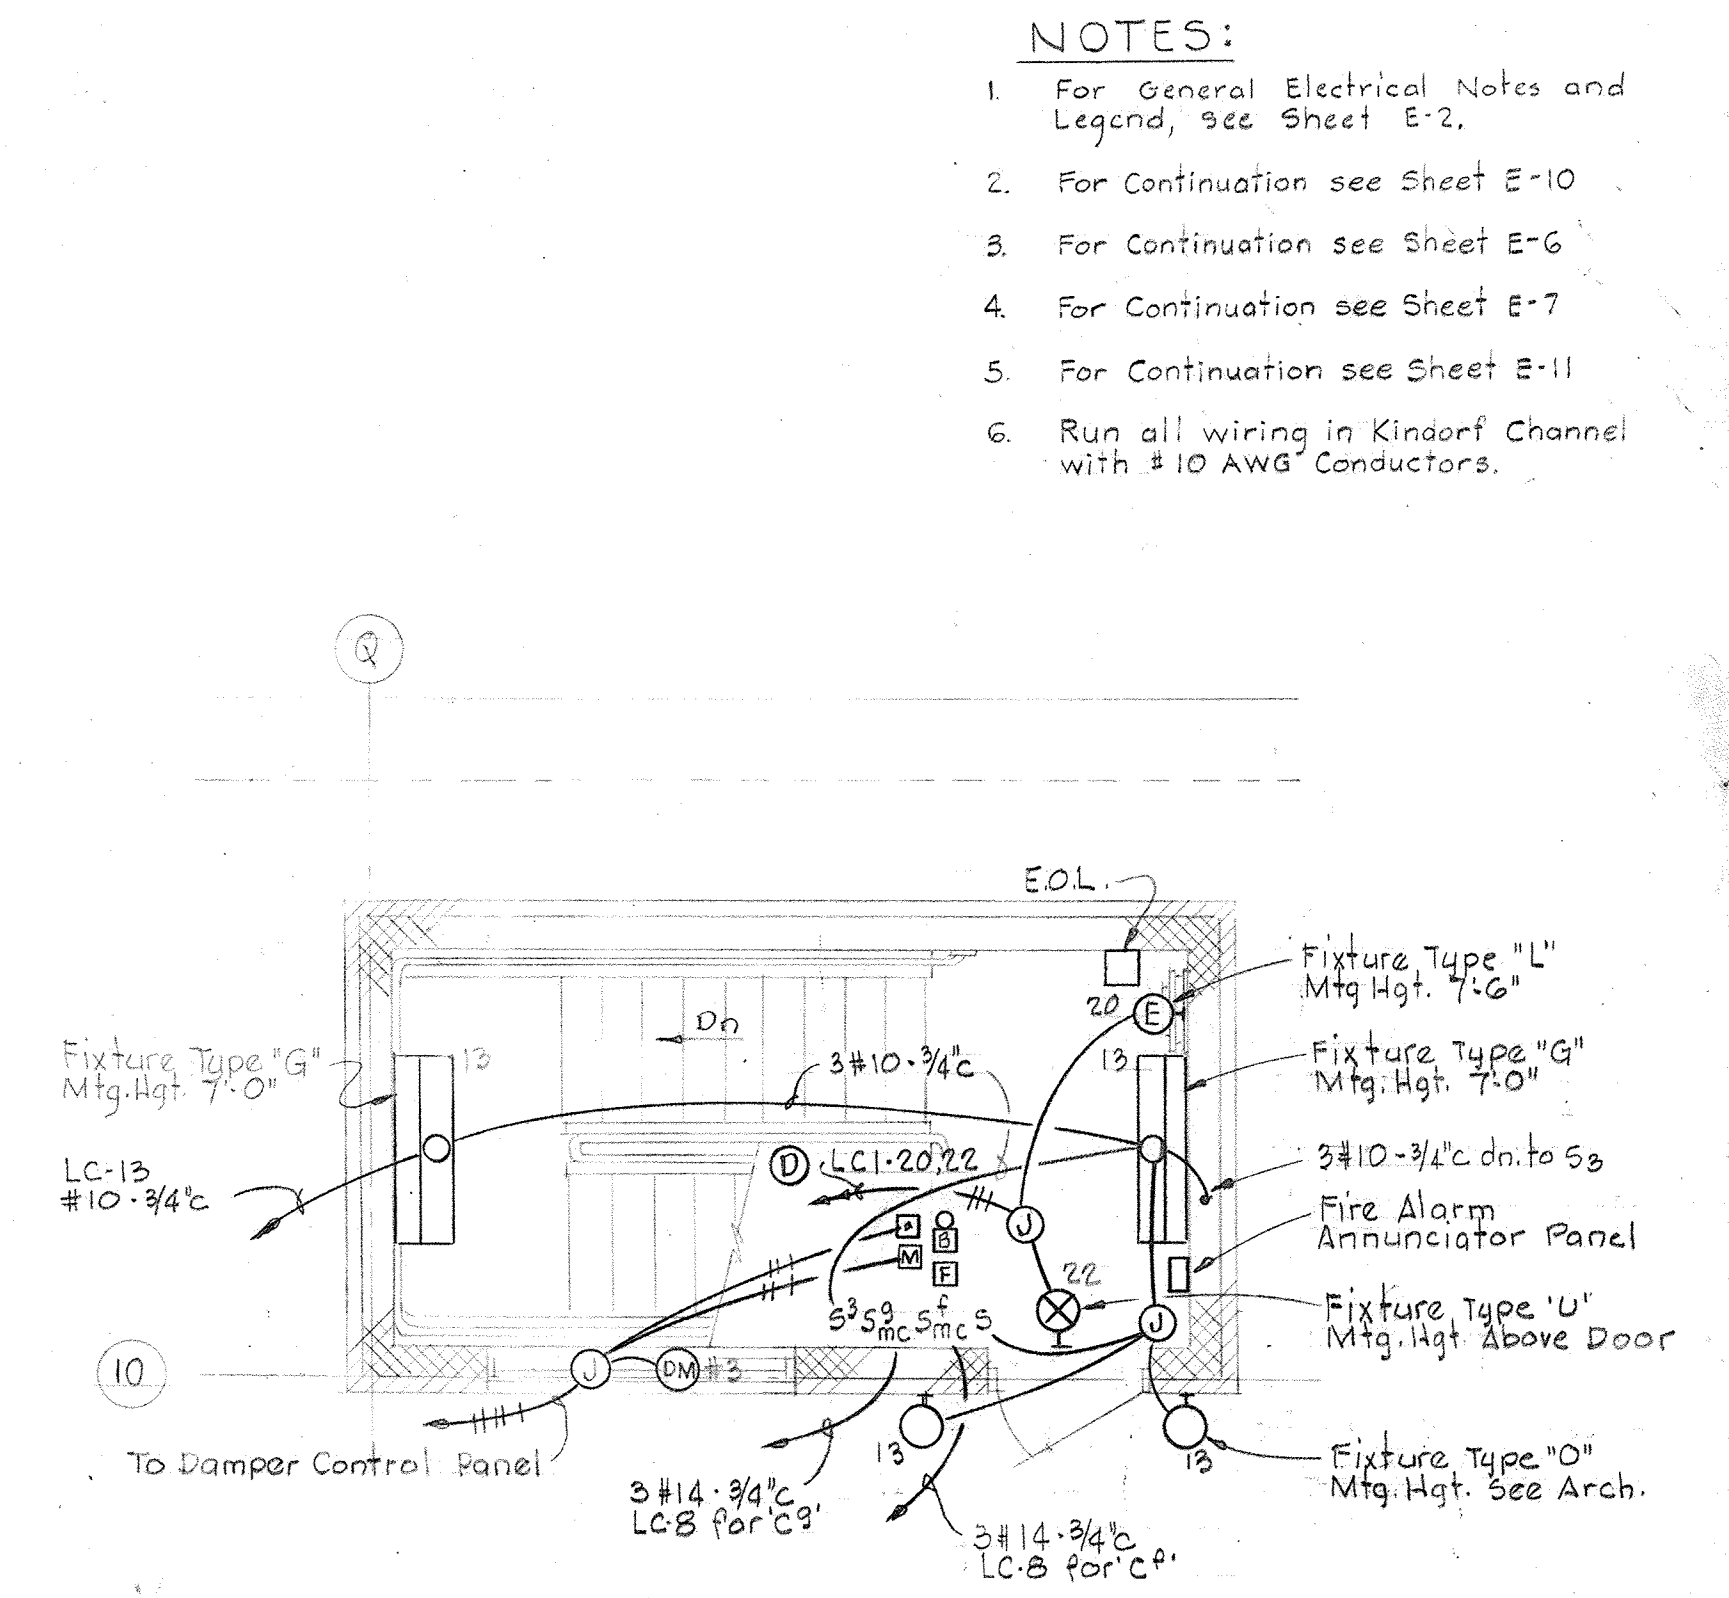 NOTES:
1. For General Electrical Notes and
Legend, see Sheet E-2.
2. For Continuation see Sheet E-10
3. For Continuation see Sheet E-6
4. For Continuation see Sheet E-7
5. For Continuation see Sheet E-11
6. Run all wiring in Kindorf Channel
with #10 AWG Conductors.
Q
E.O.L.
Fixture Type "L"
Mtg Hgt. 7'-6"
20
E
Dn
Fixture Type "G"
Mtg. Hgt. 7'-0"
13
3#10-3/4"c
13
Fixture Type "G"
Mtg. Hgt. 7'-0"
LC-13
#10-3/4"c
D
LC1-20,22
3#10-3/4"c dn. to S3
J
Fire Alarm
Annunciator Panel
a
B
M
F
22
S3 Sgmc Sfmc S
J
Fixture Type 'U'
Mtg. Hgt Above Door
10
J
DM
#3
To Damper Control Panel
13
13
Fixture Type "O"
Mtg. Hgt. See Arch.
3#14-3/4"c
LC-8 for 'Cg'
3#14-3/4"c
LC-8 for 'Cf'